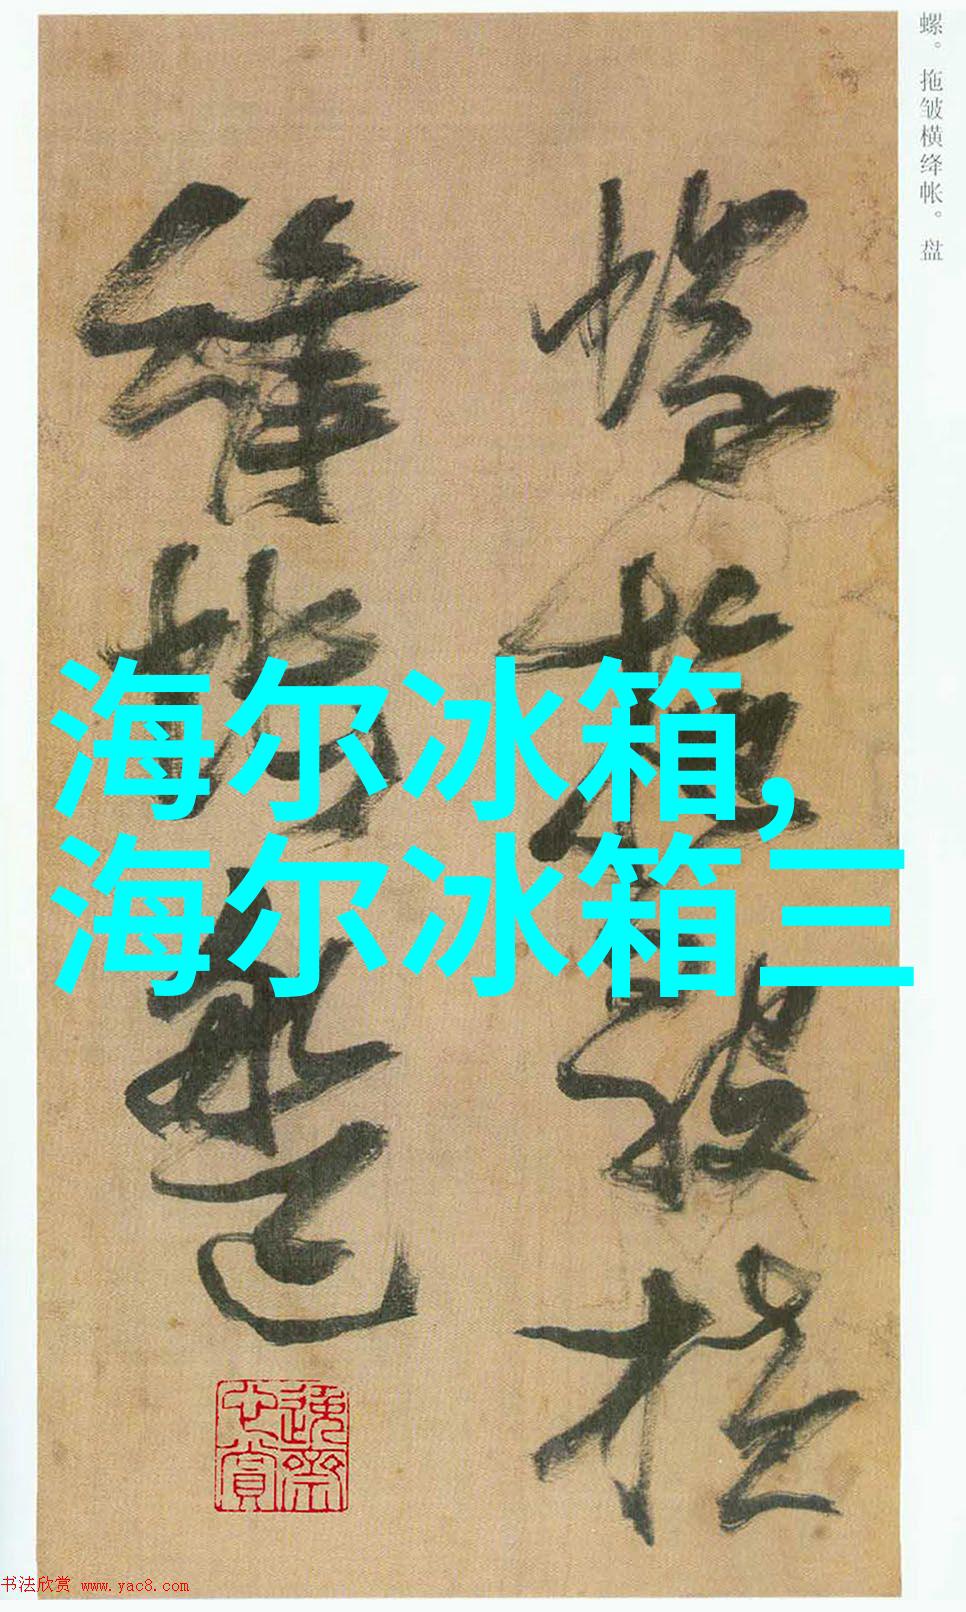 螺。拖皱横绛帐。盘
螺拖皺橫
絳帳盤
海尔冰箱,
海尔冰箱三
书法欣赏 www.yac8.com